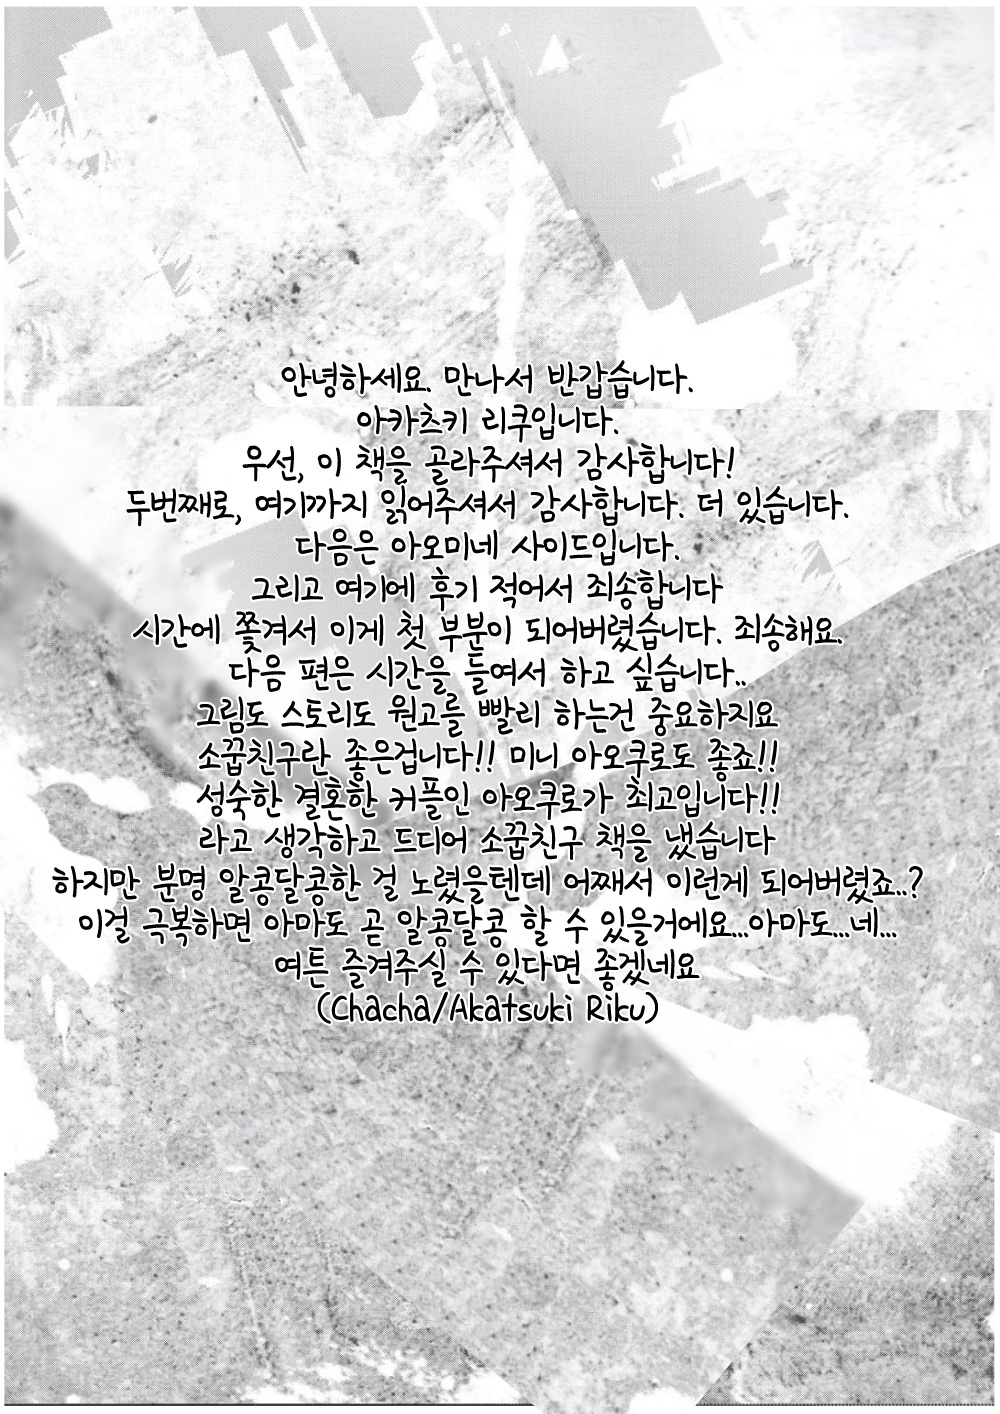 안녕하세요. 만나서 반갑습니다.
아카츠키 리쿠입니다.
우선, 이 책을 골라주셔서 감사합니다!
두번째로, 여기까지 읽어주셔서 감사합니다. 더 있습니다.
다음은 아오미네 사이드입니다.
그리고 여기에 후기 적어서 죄송합니다
시간에 쫓겨서 이게 첫 부분이 되어버렸습니다. 죄송해요.
다음 편은 시간을 들여서 하고 싶습니다..
그림도 스토리도 원고를 빨리 하는건 중요하지요
소꿉친구란 좋은겁니다!! 미니 아오쿠로도 좋죠!!
성숙한 결혼한 커플인 아오쿠로가 최고입니다!!
라고 생각하고 드디어 소꿉친구 책을 냈습니다
하지만 분명 알콩달콩한 걸 노렸을텐데 어째서 이런게 되어버렸죠..?
이걸 극복하면 아마도 곧 알콩달콩 할 수 있을거에요...아마도...네...
여튼 즐겨주실 수 있다면 좋겠네요
(Chacha/Akatsuki Riku)